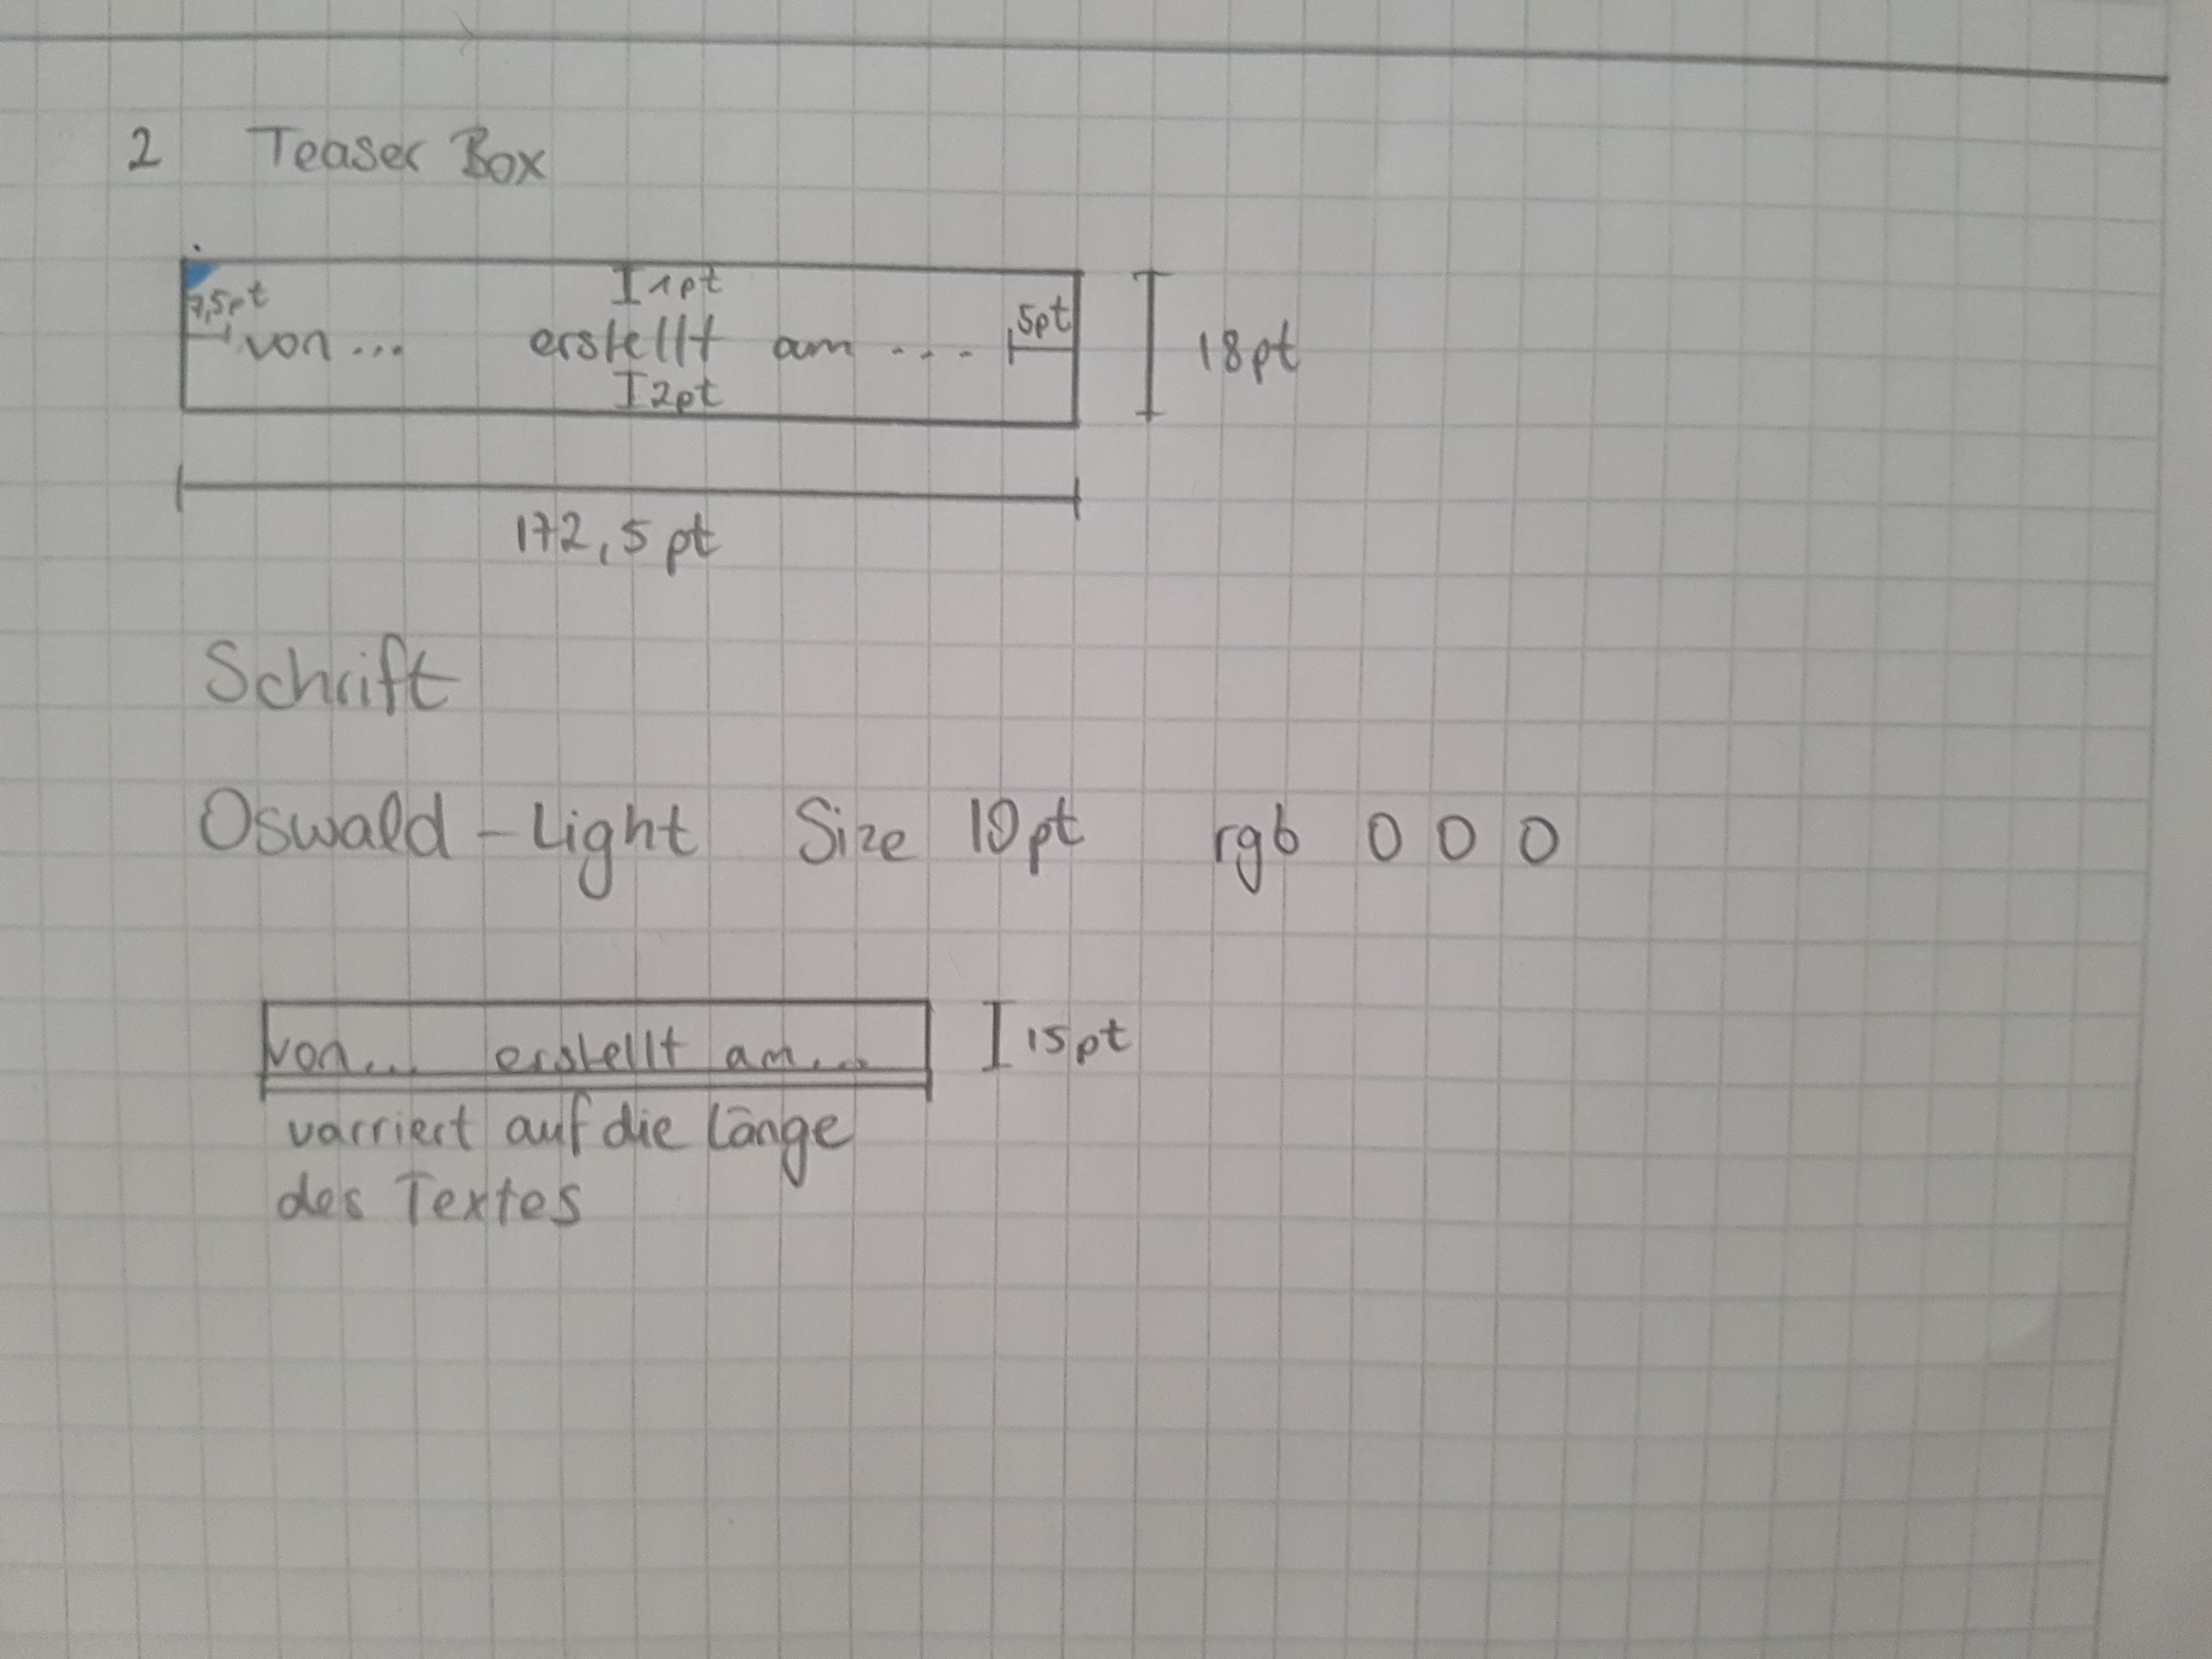 2 Teaser Box
7,5pt
1pt
5pt
von ... erstellt am ....
18pt
2pt
172,5 pt
Schrift
Oswald - Light Size 10pt rgb 0 0 0
von... erstellt am...
15pt
varriert auf die Länge
des Textes